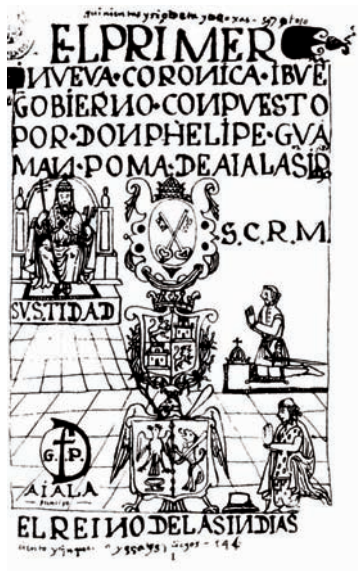 EL PRIMER
NVEVA·CORONICA·IBVE
GOBIERNO·CONPVESTO
POR·DON PHELIPE·GVA
MAN·POMA·DE AIALA SIÑ
S.C.R.M
SV.STIDAD
G.P.
AIALA
EL REINO DE LAS INDIAS
1